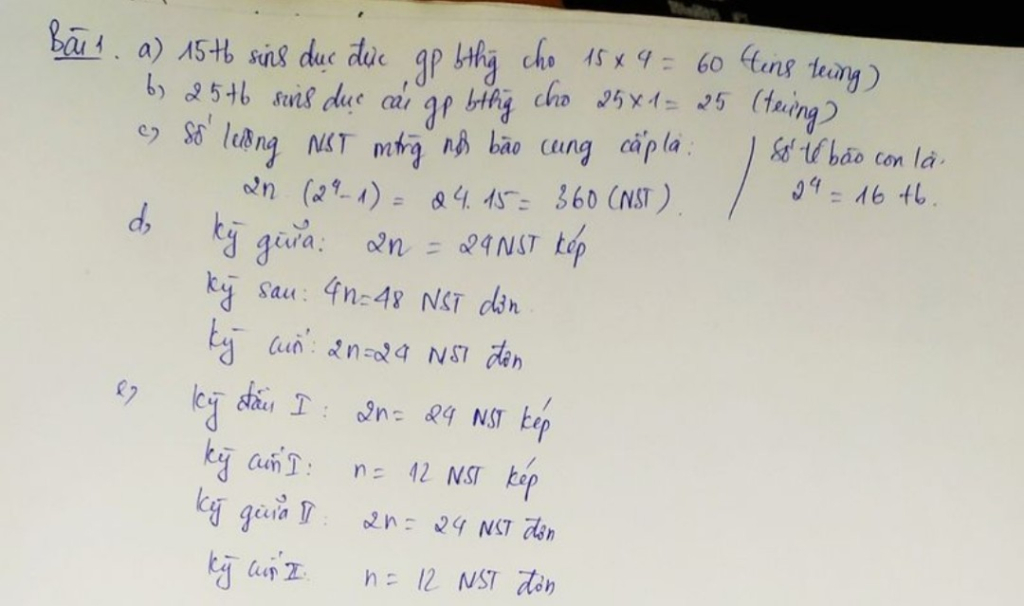 Bài 1. a) 15 tb sinh dục đực gp bthg cho 15 x 4 = 60 (tinh trùng)
b) 25 tb sinh dục cái gp bthg cho 25 x 1 = 25 (trứng)
c) Số lượng NST mtrg nội bào cung cấp là:
2n (2⁴ - 1) = 24. 15 = 360 (NST).
Số tế bào con là.
2⁴ = 16 tb.
d) Kỳ giữa: 2n = 24 NST kép
Kỳ sau: 4n = 48 NST đơn
Kỳ cuối: 2n = 24 NST đơn
e) Kỳ đầu I: 2n = 24 NST kép
Kỳ cuối I: n = 12 NST kép
Kỳ giữa II: 2n = 24 NST đơn
Kỳ cuối II. n = 12 NST đơn